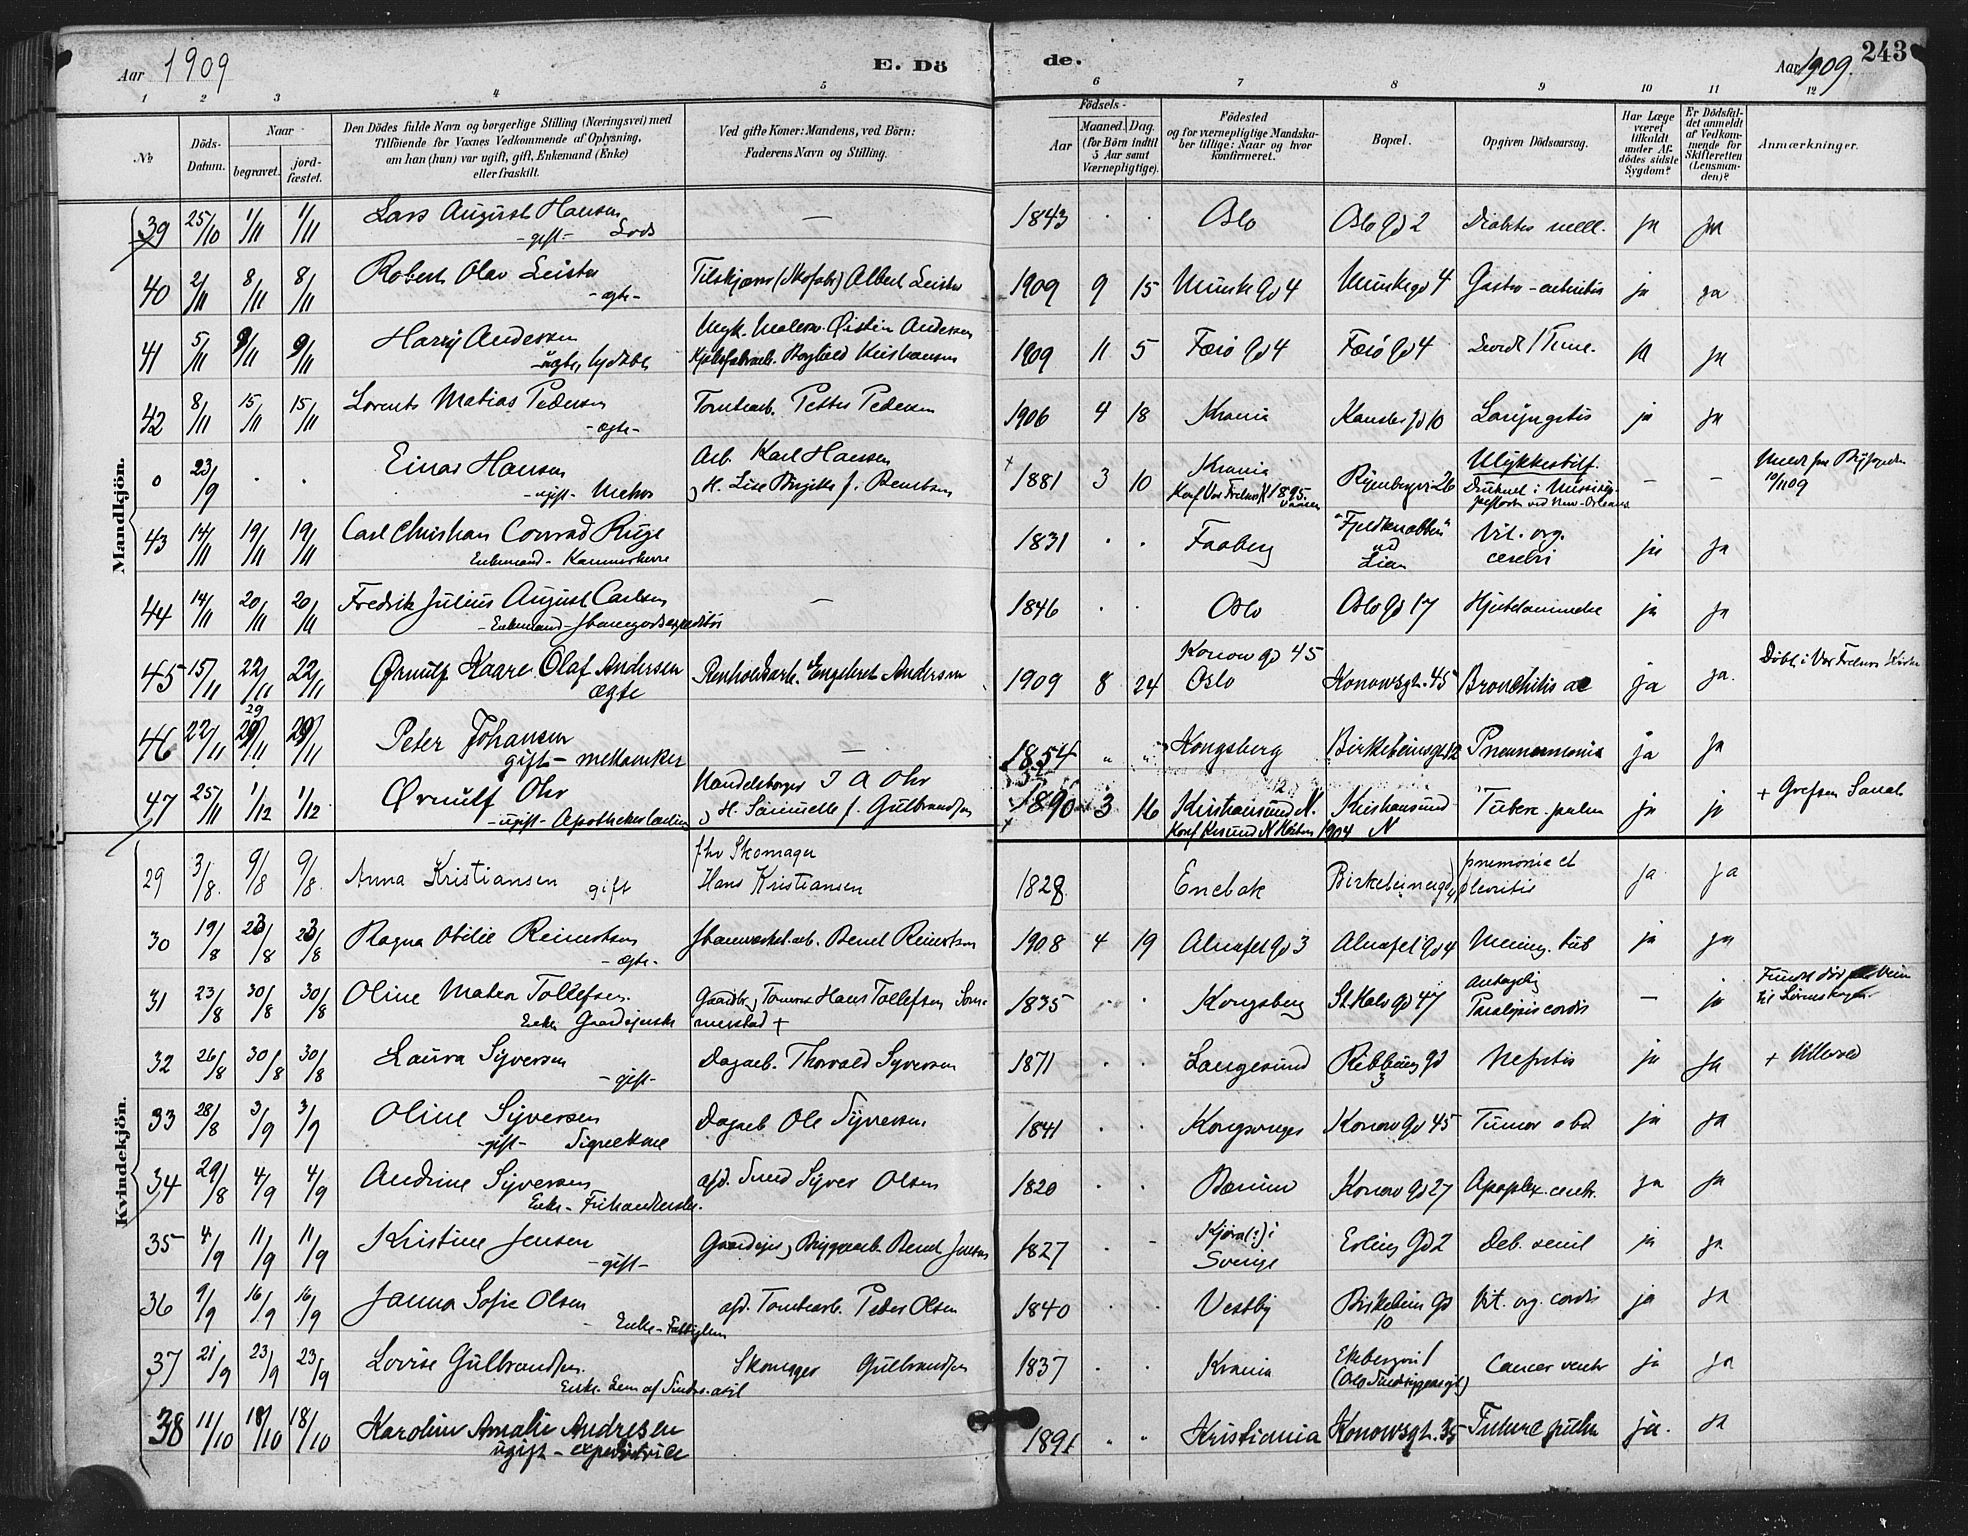 Aar 1909 E. Döde. Aar 1909. 243
1 2 3 4 5 6 7 8 9 10 11 12
№
Döds-Datum.
Naar
begravet.
jord-fæstet.
Den Dödes fulde Navn og borgerlige Stilling (Næringsvei) med
Tilföiende for Voxnes Vedkommende af Oplysning,
om han (hun) var ugift, gift, Enkemand (Enke)
eller fraskilt.
Ved gifte Koner: Mandens, ved Börn:
Faderens Navn og Stilling.
Födsels-
Aar
Maaned. Dag.
(for Börn indtil
5 Aar samt
Værnepligtige).
Födested
og for værnepligtige Mandska-
ber tillige: Naar og hvor
konfirmeret.
Bopæl.
Opgiven Dödsaarsag.
Har Læge
været
tilkaldt
under Af-
dödes sidste
Sygdom?
Er Dödsfal-
det anmeldt
af Vedkom-
mende for
Skifteretten
(Lensman-
den)?
Anmærkninger.
Mandkjön.
39 25/10 1/11 1/11 Lars August Hansen — 1843 . . Oslo Oslo Gd 2 Diabetes mell. ja ja
-gift- Lods
40 2/11 8/11 8/11 Robert Olav Leister Tilskjærer (Skofabr) Albert Leister 1909 9 15 Munke Gd 4 Munkegd 4 Gastro-enteritis ja ja
-ægte-
41 5/11 9/11 9/11 Harry Andersen Ugk. Malersv. Øistein Andersen 1909 11 5 Færø Gd 4 Færø Gd 4 ja
-uægte,
42 8/11 15/11 15/11 Lorents Matias Pedersen Tomtearb. Petter Pedersen 1906 4 18 Krania Kansler Gd 10 Laryngitis ja ja
-ægte-
0 23/9 . . Einar Hansen Arb. Karl Hansen 1881 3 10 Krania Ryenbergvei 26 Ulykkestilf. — —
-ugift- H. Lise Birgitte f. Berntsen Konf Vor Frelsers K 1895 ved New-Orleans 10/11 09
43 14/11 19/11 19/11 Carl Christian Conrad Ruge 1831 . . Faaberg "Fjeldknabben" Vit. org. ja ja
Enkemand - Kammerherre ved Lian cerebri
44 14/11 20/11 20/11 Fredrik Julius August Carlsen — 1846 . . Oslo Oslo Gd 17 ja ja
-Enkemand-
45 15/11 22/11 22/11 Ørnulf Kaare Olaf Andersen Renholdsarb. Engebret Andersen 1909 8 24 Konow Gd 45 Oslo Konowsgt. 45 Bronchitis ac ja ja. Döbt i Vor Frelsers Kirke
ægte
46 22/11 29/11 29/11 Peter Johansen — 1854 " " Kongsberg Birkebeinergt 12 Pneumonia ja ja
29
gift - mekaniker
47 25/11 1/12 1/12 Ørnulf Ohr Handelsborger I A Ohr 1890 3 16 Kristiansund N. Kristiansund N Tuberc. pulm ja ja + Grefsen Sanat
-ugift- H. Samuelle f. Gulbrandsen 1904
Kvindekjön.
29 3/8 9/8 9/8 Anna Kristiansen gift fhv Skomager Hans Kristiansen 1828 Enebak pnemonia et pleuritis ja ja
30 19/8 23/8 23/8 Ragna Otilie Reinertsen Bernt Reinertsen 1908 4 19 Alnafet Gd 3 Alnafet Gd 4 Mening. tub ja ja
-ægte-
31 23/8 30/8 30/8 Oline Matea Tollefsen Tomarb Hans Tollefsen 1835 . . Kongsberg St. Hals Gd 47 Paralysis cordis — ja
Enke Gaardejerske +
32 26/8 30/8 30/8 Laura Syversen Dagarb. Thorvald Syversen 1871 . . Langesund 3 Nefritis ja ja + Ullevaal
-gift-
33 28/8 3/9 3/9 Oline Syversen Dagarb Ole Syversen 1841 . . Kongsvinger Konow Gd 45 Tumor abd ja ja
-gift- Signekone
34 29/8 4/9 4/9 Andrine Syversen afd. Smed Syver Olsen 1820 . . Bærum Konow Gd 27 Apoplex. cerebr. ja ja
Enke -
35 4/9 11/9 11/9 Kristine Jensen Bernt Jensen 1827 . - Sverige Erling Gd 2 Deb. senil ja ja
-gift-
36 9/9 16/9 16/9 Janna Sofie Olsen afd. Tomtearb. Peder Olsen 1840 . . Vestby Birkebein Gd 10 Vit. org. cordis ja ja
Enke - Fattiglem
37 21/9 23/9 23/9 Lovise Gulbrandsen Skomager Gulbrandsen 1837 . . Krania Ekebergvei 1 Cancer ventr ja ja
Enke.
38 11/10 18/10 18/10 Karoline Amalie Andresen 1891 " " Kristiania Konowsgt. 35 Tuberc pulm ja. ja
ugift - expeditrice